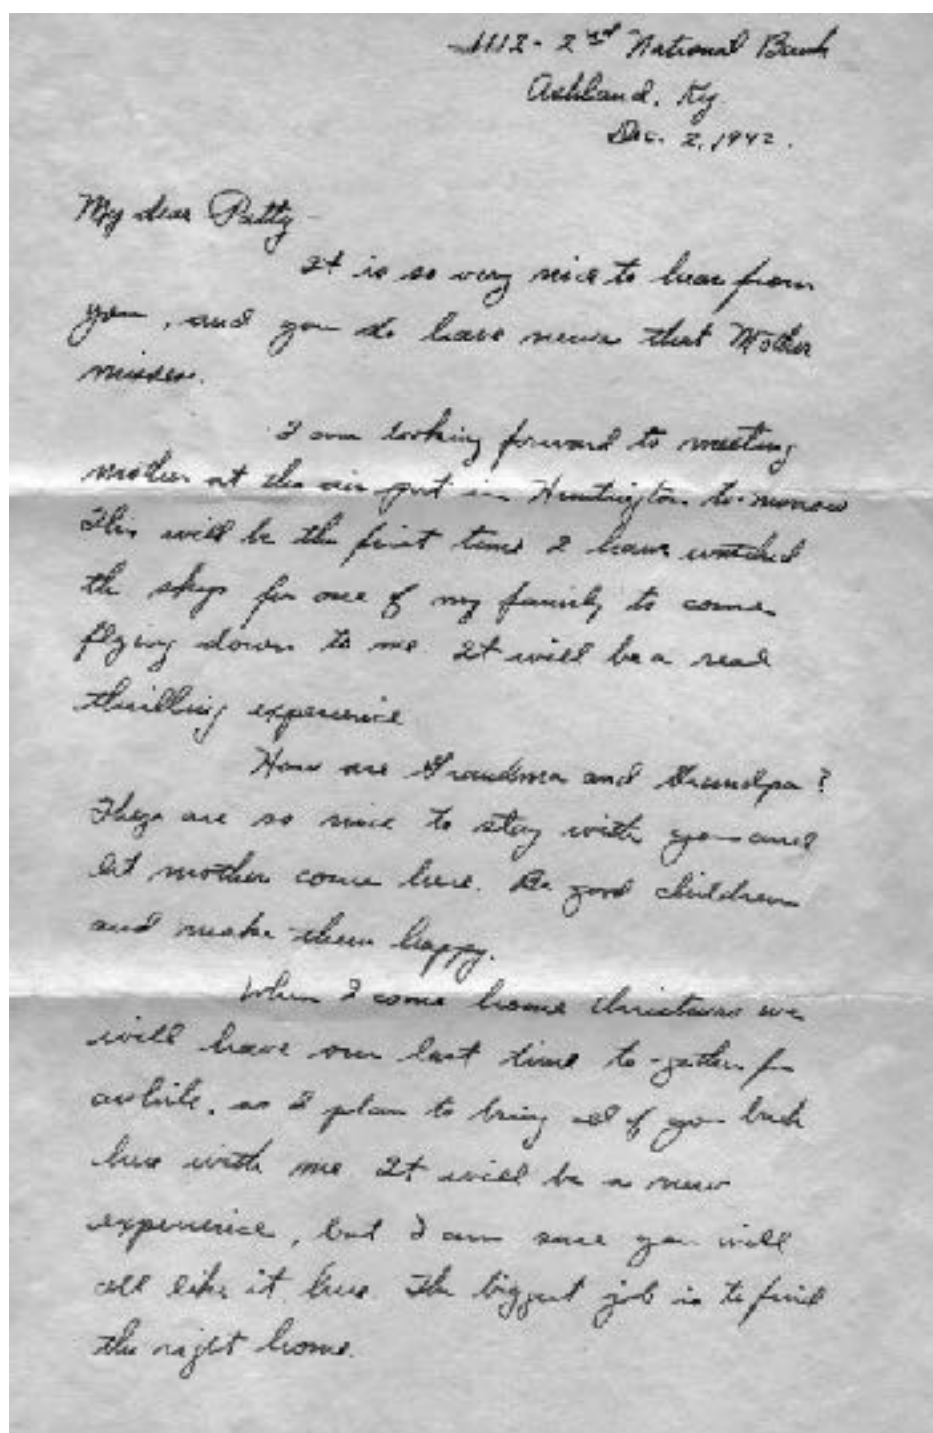 1112 - 2nd National Bank
Ashland, Ky
Dec. 2, 1942.
My dear Patty -
It is so very nice to hear from
you, and you do have news that Mother
misses.
I am looking forward to meeting
mother at the air port in Huntington to-morrow
This will be the first time I have watched
the skys for one of my family to come
flying down to me. It will be a real
thrilling experience
How are Grandma and Grandpa?
They are so nice to stay with you and
let mother come here. Be good children
and make them happy.
When I come home Christmas we
will have our last time to-gether for
awhile, as I plan to bring all of you back
here with me. It will be a new
experience, but I am sure you will
all like it here. The biggest job is to find
the right home.